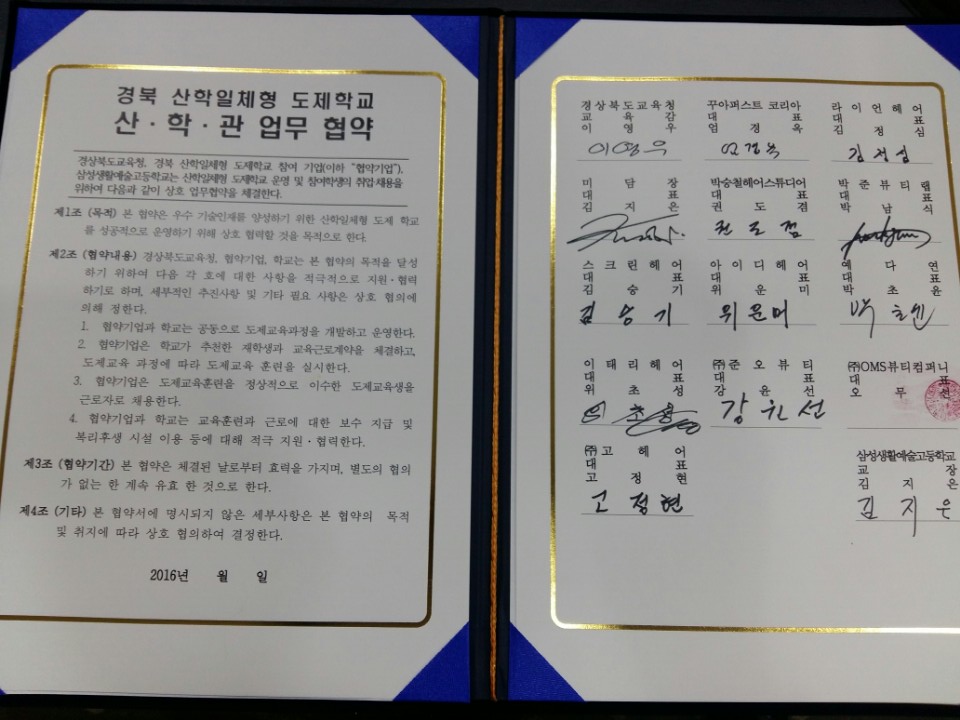 경북 산학일체형 도제학교
산·학·관 업무 협약
경상북도교육청, 경북 산학일체형 도제학교 참여 기업(이하 "협약기업"),
삼성생활예술고등학교는 산학일체형 도제학교 운영 및 참여학생의 취업·채용을
위하여 다음과 같이 상호 업무협약을 체결한다.
제1조 (목적) 본 협약은 우수 기술인재를 양성하기 위한 산학일체형 도제 학교
를 성공적으로 운영하기 위해 상호 협력할 것을 목적으로 한다.
제2조 (협약내용) 경상북도교육청, 협약기업, 학교는 본 협약의 목적을 달성
하기 위하여 다음 각 호에 대한 사항을 적극적으로 지원·협력
하기로 하며, 세부적인 추진사항 및 기타 필요 사항은 상호 협의에
의해 정한다.
1. 협약기업과 학교는 공동으로 도제교육과정을 개발하고 운영한다.
2. 협약기업은 학교가 추천한 재학생과 교육근로계약을 체결하고,
도제교육 과정에 따라 도제교육 훈련을 실시한다.
3. 협약기업은 도제교육훈련을 정상적으로 이수한 도제교육생을
근로자로 채용한다.
4. 협약기업과 학교는 교육훈련과 근로에 대한 보수 지급 및
복리후생 시설 이용 등에 대해 적극 지원·협력한다.
제3조 (협약기간) 본 협약은 체결된 날로부터 효력을 가지며, 별도의 협의
가 없는 한 계속 유효 한 것으로 한다.
제4조 (기타) 본 협약서에 명시되지 않은 세부사항은 본 협약의 목적
및 취지에 따라 상호 협의하여 결정한다.
2016년 월 일
경상북도교육청
교육감
이영우
이영우
꾸아퍼스트 코리아
대표
엄경옥
엄경옥
라이언헤어
대표
김정심
김정심
미담장
대표
김지은
박승철헤어스튜디어
대표
권도겸
권도겸
박준뷰티랩
대표
박남식
스크린헤어
대표
김승기
김승기
아이디헤어
대표
위운미
위운미
예다연
대표
박초윤
이태리헤어
대표
위초성
㈜준오뷰티
대표
강윤선
강윤선
㈜OMS뷰티컴퍼니
대표
오무선
㈜고헤어
대표
고정현
고정현
삼성생활예술고등학교
교장
김지은
김지은